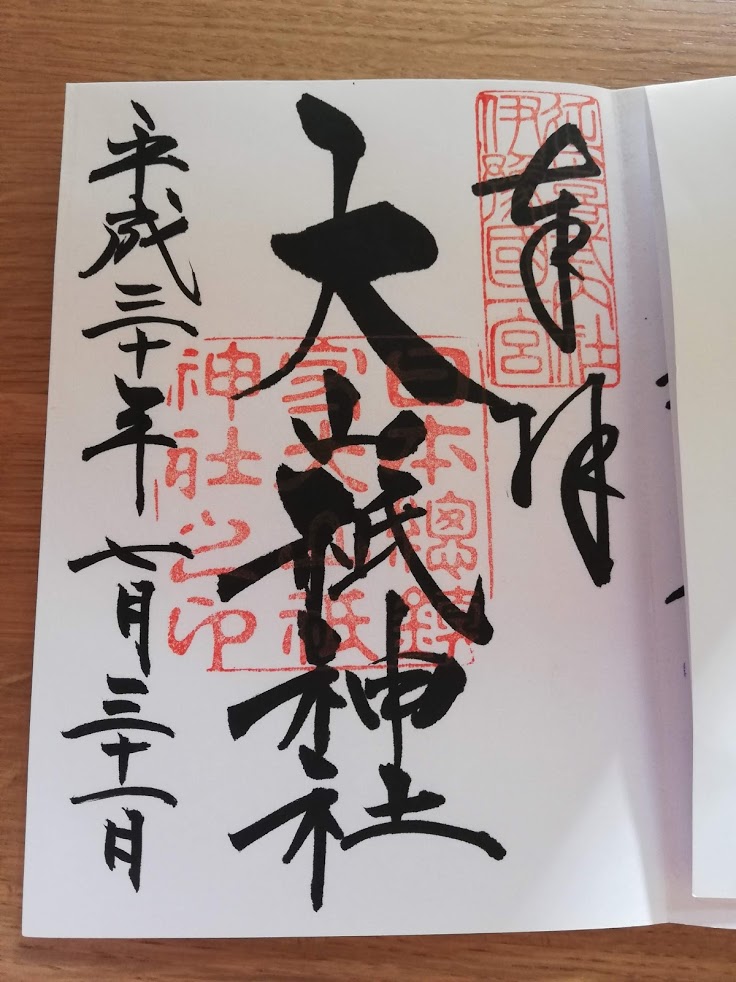 奉拝
延喜式内社
伊豫國一宮
大山祇神社
日本總鎮
守大山祇
神社之印
平成三十年七月三十一日